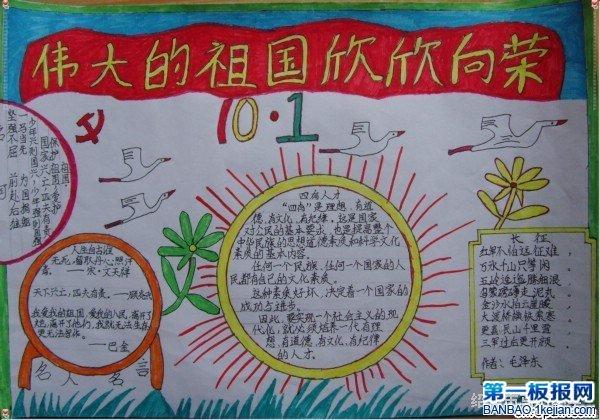 伟大的祖国欣欣向荣
10·1
祖国:
保护祖国、爱护
国家兴亡,匹夫有责
少年兴则国兴,少年强则国强
一马当先 为国捐躯
坚强不屈 前赴后继
名 词
人生自古谁
无死,留取丹心照汗
青。——宋·文天祥
天下兴亡,匹夫有责。——顾炎武
我爱我的祖国,爱我的人民,离开了
她,离开了他们,我就无法生存,
更无法写作。
——巴金
名 人 名 言
四有人才
“四有”是理想,有道
德,有文化,有纪律,这是国家
对公民的基本要求,也是提高整个
中华民族的思想道德素质和科学文化
素质的基本内容。
任何一个民族、任何一个国家的人
民都有自己的文化素质。
这种素质好坏,决定着一个国家的
成功与进步。
因此,要实现一个社会主义的现
代化,就必须培养一代有理
想,有道德,有文化,有纪律
的人才。
长 征
红军不怕远征难,
万水千山只等闲。
五岭逶迤腾细浪,
乌蒙磅礴走泥丸。
金沙水拍云崖暖,
大渡桥横铁索寒。
更喜岷山千里雪,
三军过后尽开颜。
作者:毛泽东
第一板报网
BANBAO.1kejian.com